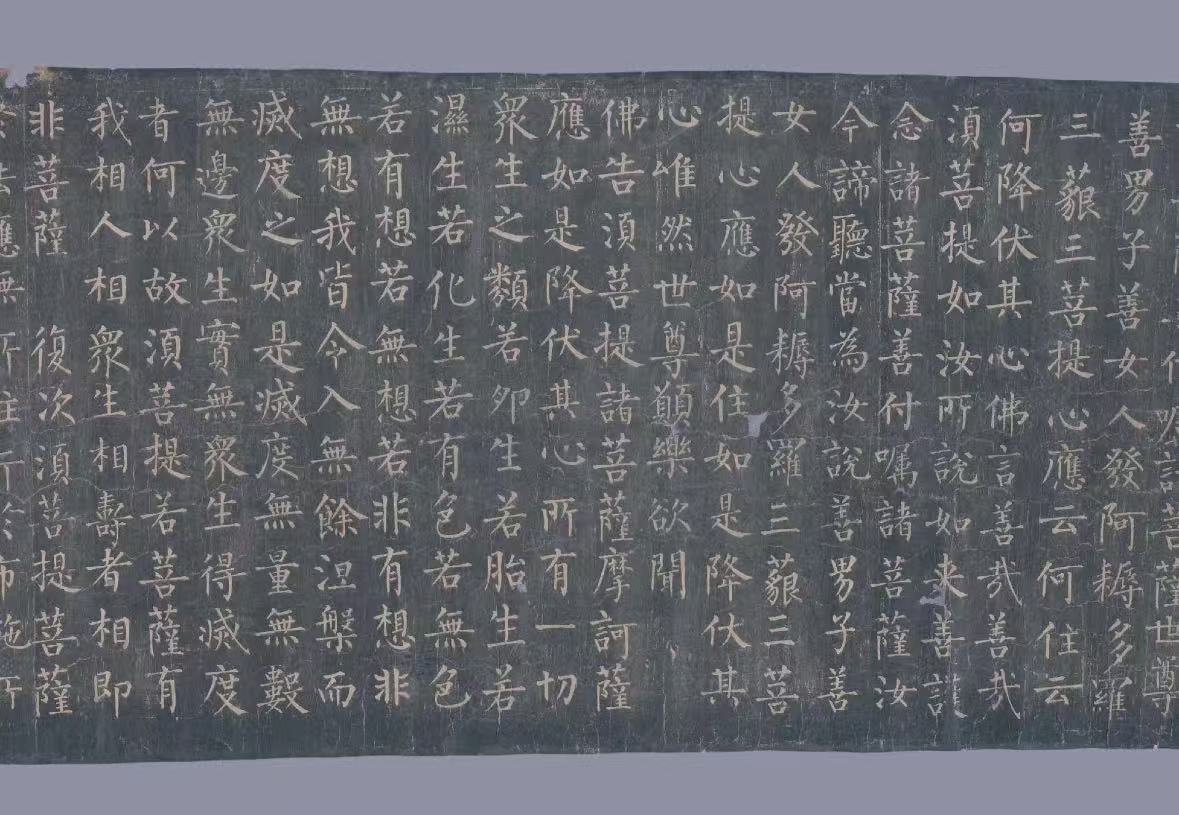 付囑諸菩薩世尊
善男子善女人發阿耨多羅
三藐三菩提心應云何住云
何降伏其心佛言善哉善哉
須菩提如汝所說如来善護
念諸菩薩善付囑諸菩薩汝
今諦聽當為汝說善男子善
女人發阿耨多羅三藐三菩
提心應如是住如是降伏其
心唯然世尊願樂欲聞
佛告須菩提諸菩薩摩訶薩
應如是降伏其心所有一切
衆生之類若卵生若胎生若
濕生若化生若有色若無色
若有想若無想若非有想非
無想我皆令入無餘涅槃而
滅度之如是滅度無量無數
無邊衆生實無衆生得滅度
者何以故須菩提若菩薩有
我相人相衆生相壽者相即
非菩薩 復次須菩提菩薩
於法應無所住行於布施所